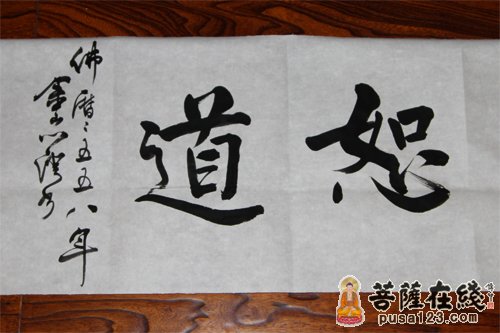 恕道
佛曆二五五八年
菩薩在綫
pusa123.com